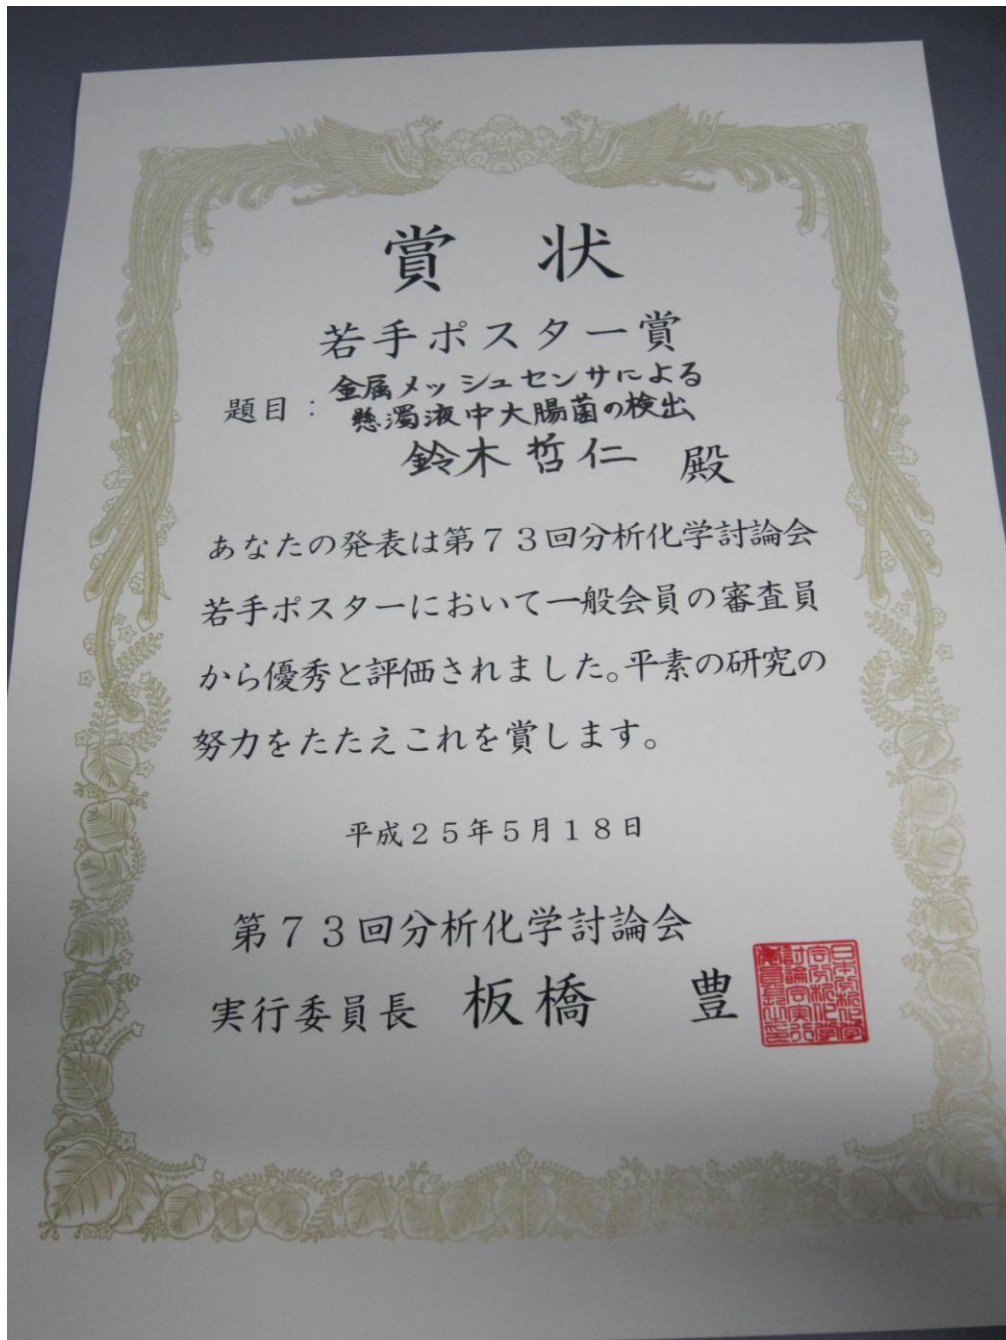 賞 状
若手ポスター賞
題目：金属メッシュセンサによる
懸濁液中大腸菌の検出
鈴木哲仁 殿
あなたの発表は第７３回分析化学討論会
若手ポスターにおいて一般会員の審査員
から優秀と評価されました。平素の研究の
努力をたたえこれを賞します。
平成２５年５月１８日
第７３回分析化学討論会
実行委員長 板橋 豊